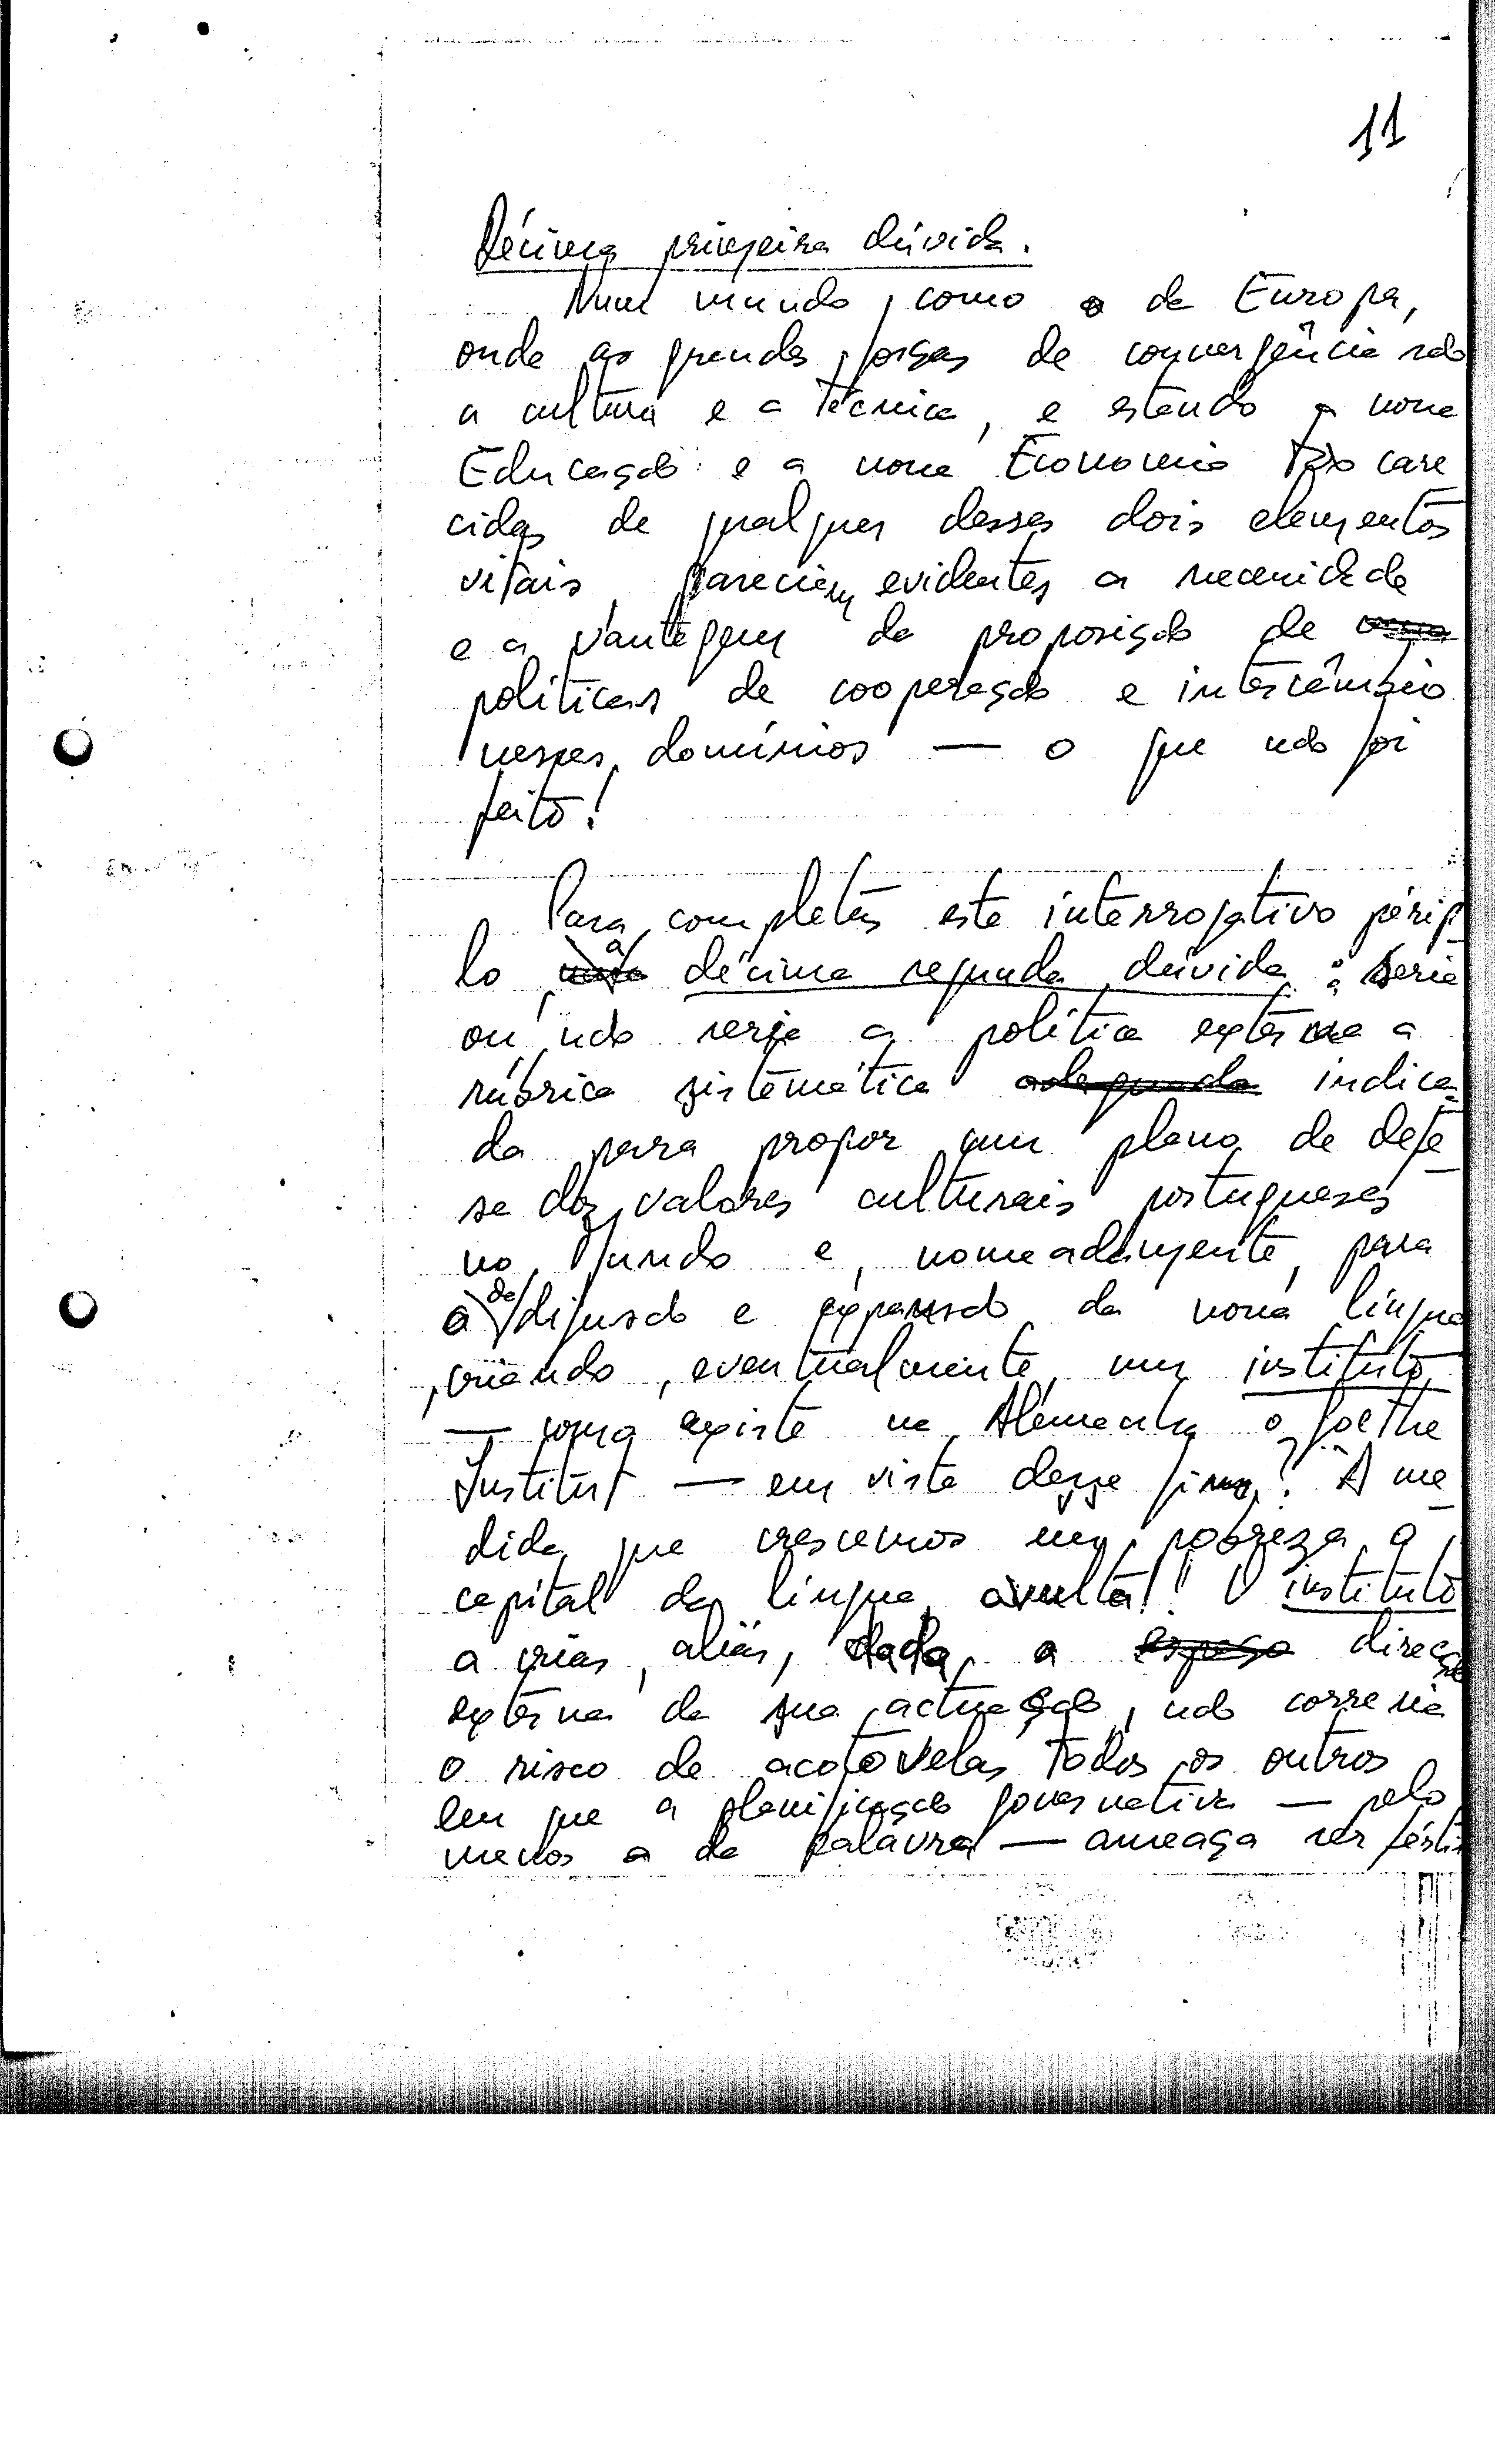 11
Décima primeira dúvida.
Num mundo, como o da Europa,
onde as grandes forças de convergência são
a cultura e a técnica, e estando a nossa
Educação e a nossa Economia tão care
cidas de qualquer desses dois elementos
vitais, pareciam evidentes a necessidade
e a vantagem da proposição de
políticas de cooperação e intercâmbio
nesses domínios — o que não foi
feito!
Para completar este interrogativo périp-
lo, a décima segunda dúvida: seria
ou não seria a política externa a
rúbrica sistemática adequada indica-
da para propor um plano de defe-
sa dos valores culturais portugueses
no Mundo e, nomeadamente, para
a da difusão e expansão da nossa língua
criando, eventualmente, um instituto,
— como existe na Alemanha o Goethe
Institut — em vista desse fim? À me-
dida que crescemos em pobreza, o
capital da língua avulta! O instituto
a criar, aliás, dada a direcção
externa da sua actuação, não correria
o risco de acotovelar todos os outros
em que a planificação governativa — pelo
menos a da palavra — ameaça ser fértil